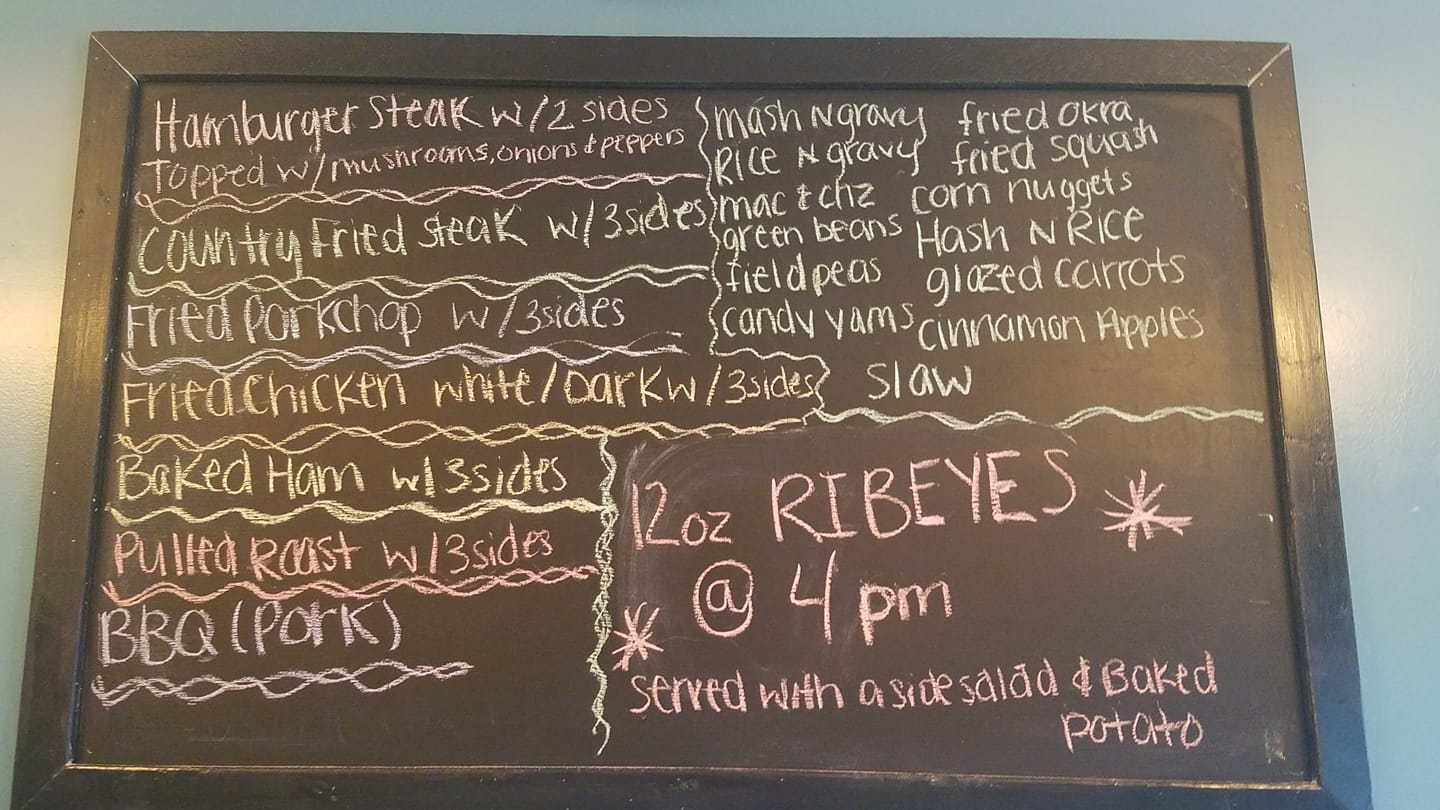 Hamburger Steak w/2 sides
Topped w/mushrooms, onions & peppers
Country Fried Steak w/3sides
Fried Porkchop w/3sides
Fried Chicken white/Dark w/3sides
Baked Ham w/3sides
Pulled Roast w/3sides
BBQ (Pork)
mash N gravy fried okra
Rice N gravy fried squash
mac & chz corn nuggets
green beans Hash N Rice
field peas glazed carrots
candy yams cinnamon Apples
slaw
12oz RIBEYES
@ 4pm
served with a side salad & Baked
potato